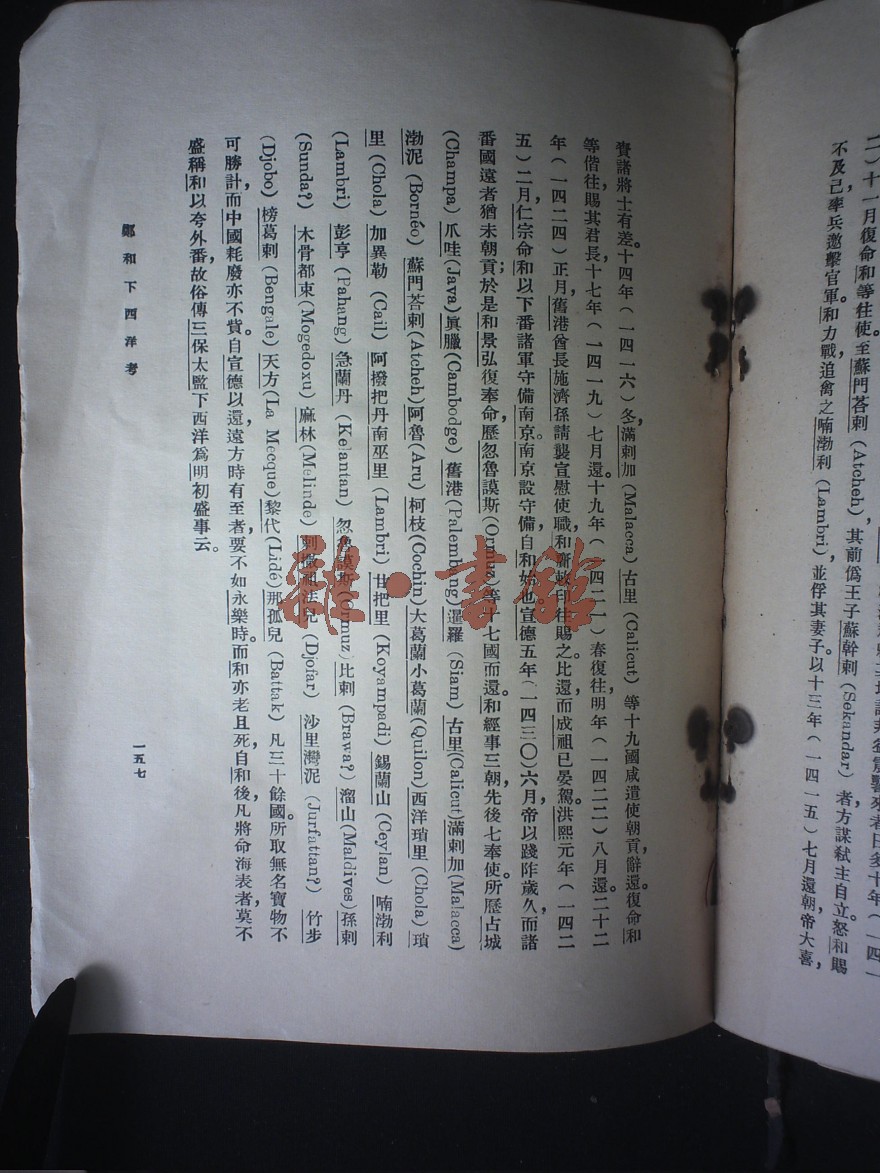 二）十一月復命和等往使至蘇門荅剌（Atcheh）其前僞王子蘇幹剌（Sekandar）者方謀弑主自立怒和賜
不及己率兵邀擊官軍。和力戰追禽之喃渤利（Lambri），並俘其妻子。以十三年（一四一五）七月還朝，帝大喜，
賚諸將士有差。十四年（一四一六）冬，滿剌加（Malacca）古里（Calicut）等十九國咸遣使朝貢，辭還。復命和
等偕往賜其君長，十七年（一四一九）七月還。十九年（一四二一）春復往，明年（一四二二）八月還。二十二
年（一四二四）正月，舊港酋長施濟孫請襲宣慰使職，和齎敕印往賜之。比還而成祖已晏駕。洪熙元年（一四二
五）二月，仁宗命和以下番諸軍守備南京。南京設守備，自和始也。宣德五年（一四三〇）六月，帝以踐阼歲久，而諸
番國遠者猶未朝貢；於是和景弘復奉命歷忽魯謨斯（Ormuz）等十七國而還。和經事三朝，先後七奉使。所歷占城
（Champa）爪哇（Java）眞臘（Cambodge）舊港（Palembang）暹羅（Siam）古里（Calicut）滿剌加（Malacca）
渤泥（Bornéo）蘇門荅剌（Atcheh）阿魯（Aru）柯枝（Cochin）大葛蘭小葛蘭（Quilon）西洋瑣里（Chola）瑣
里（Chola）加異勒（Cail）阿撥把丹南巫里（Lambri）甘把里（Koyampadi）錫蘭山（Ceylan）喃渤利
（Lambri）彭亨（Pahang）急蘭丹（Kelantan）忽魯謨斯（Ormuz）比剌（Brawa?）溜山（Maldives）孫剌
（Sunda?）木骨都束（Mogedoxu）麻林（Melinde）剌撒祖法兒（Djofar）沙里灣泥（Jurfattan?）竹步
（Djobo）榜葛剌（Bengale）天方（La Mecque）黎代（Lidé）那孤兒（Battak）凡三十餘國。所取無名寶物不
可勝計，而中國耗廢亦不貲。自宣德以還，遠方時有至者，要不如永樂時。而和亦老且死，自和後，凡將命海表者，莫不
盛稱和以夸外番，故俗傳三保太監下西洋，爲明初盛事云。
鄭和下西洋考
一五七
雜·書館